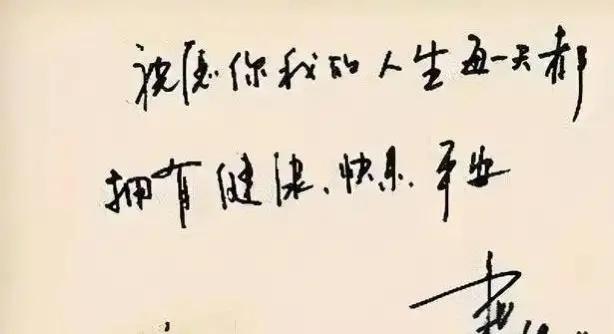 祝愿你我的人生每一天都
拥有健康、快乐、平安